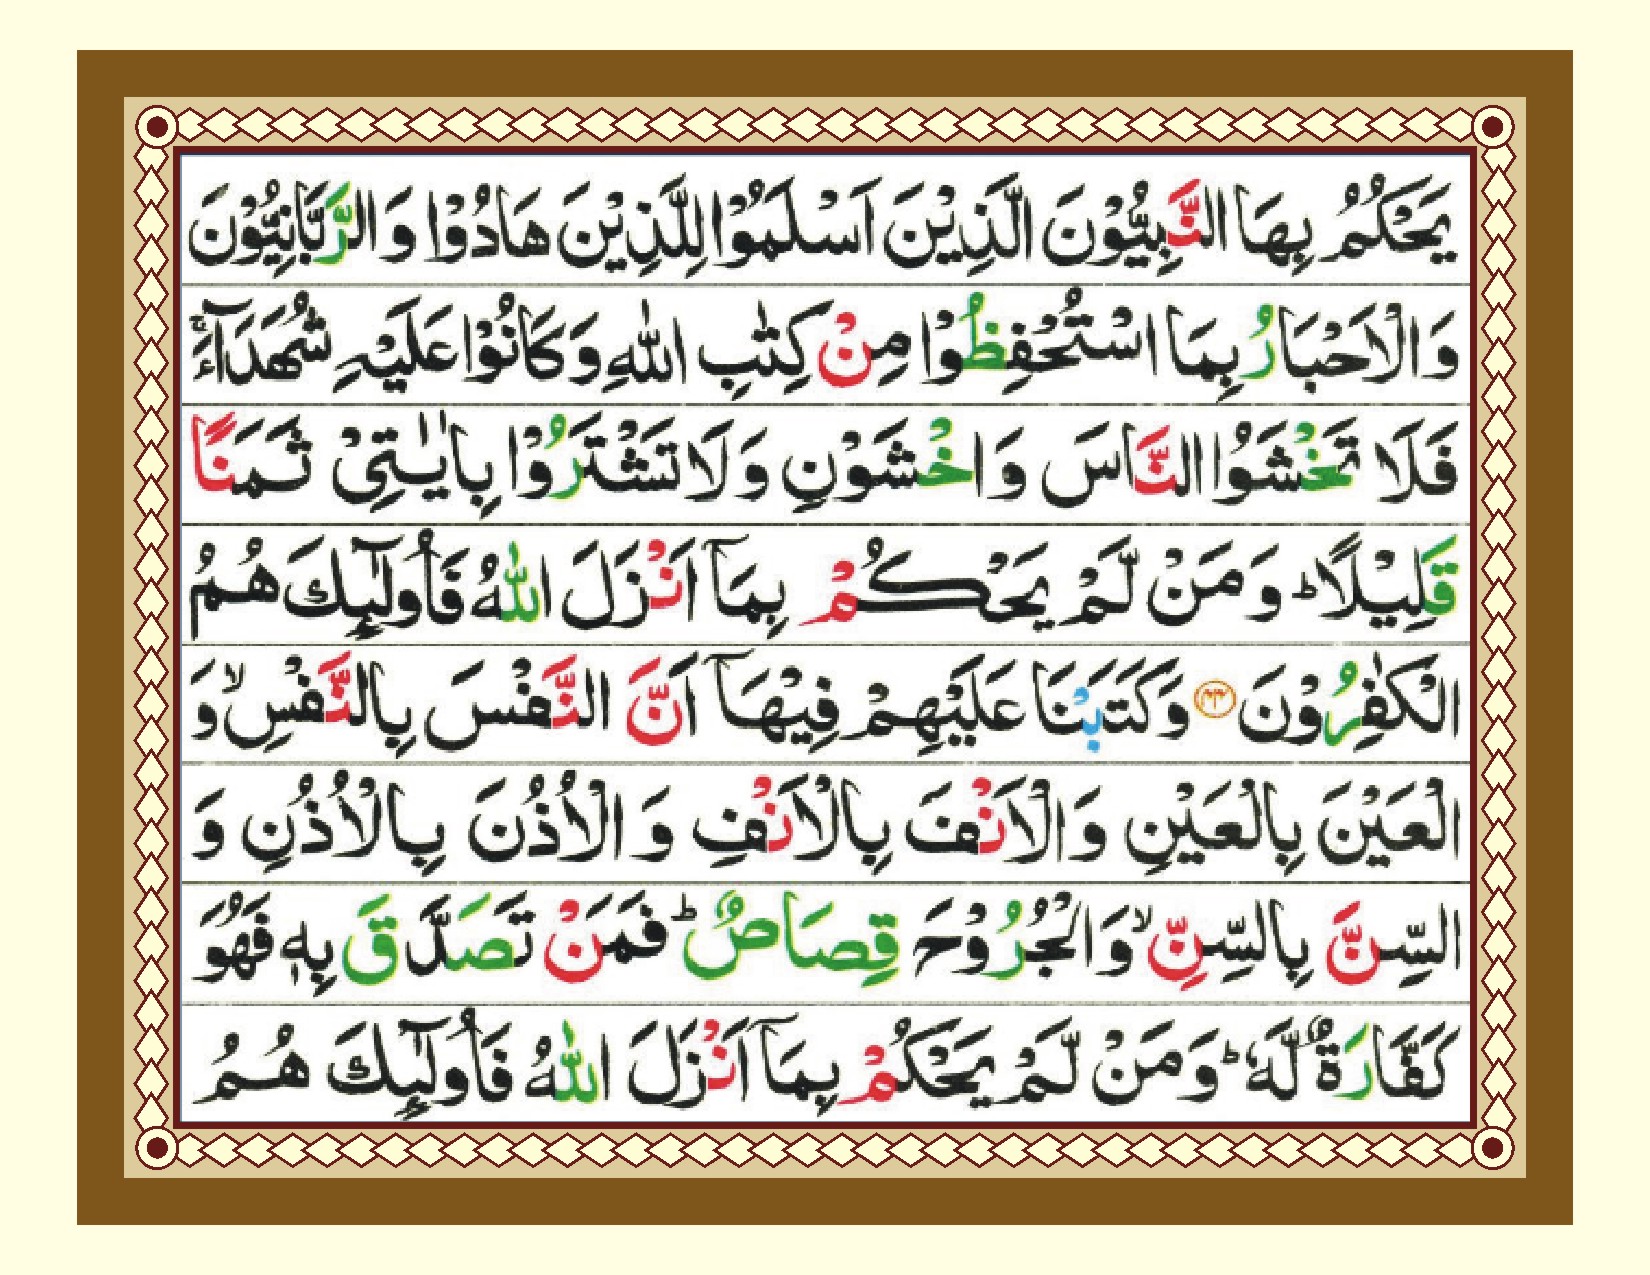 يَحْكُمُ بِهَا النَّبِيُّوْنَ الَّذِيْنَ اَسْلَمُوْا لِلَّذِيْنَ هَادُوْا وَ الرَّبّٰنِيُّوْنَ
وَ الْاَحْبَارُ بِمَا اسْتُحْفِظُوْا مِنْ كِتٰبِ اللّٰهِ وَ كَانُوْا عَلَيْهِ شُهَدَآءَۚ
فَلَا تَخْشَوُا النَّاسَ وَ اخْشَوْنِ وَ لَا تَشْتَرُوْا بِاٰيٰتِيْ ثَمَنًا
قَلِيْلًاؕ وَ مَنْ لَّمْ يَحْكُمْ بِمَاۤ اَنْزَلَ اللّٰهُ فَاُولٰٓئِكَ هُمُ
الْكٰفِرُوْنَ ﴿۴۴﴾ وَ كَتَبْنَا عَلَيْهِمْ فِيْهَاۤ اَنَّ النَّفْسَ بِالنَّفْسِۙ وَ
الْعَيْنَ بِالْعَيْنِ وَ الْاَنْفَ بِالْاَنْفِ وَ الْاُذُنَ بِالْاُذُنِ وَ
السِّنَّ بِالسِّنِّۙ وَ الْجُرُوْحَ قِصَاصٌؕ فَمَنْ تَصَدَّقَ بِهٖ فَهُوَ
كَفَّارَةٌ لَّهٗؕ وَ مَنْ لَّمْ يَحْكُمْ بِمَاۤ اَنْزَلَ اللّٰهُ فَاُولٰٓئِكَ هُمُ